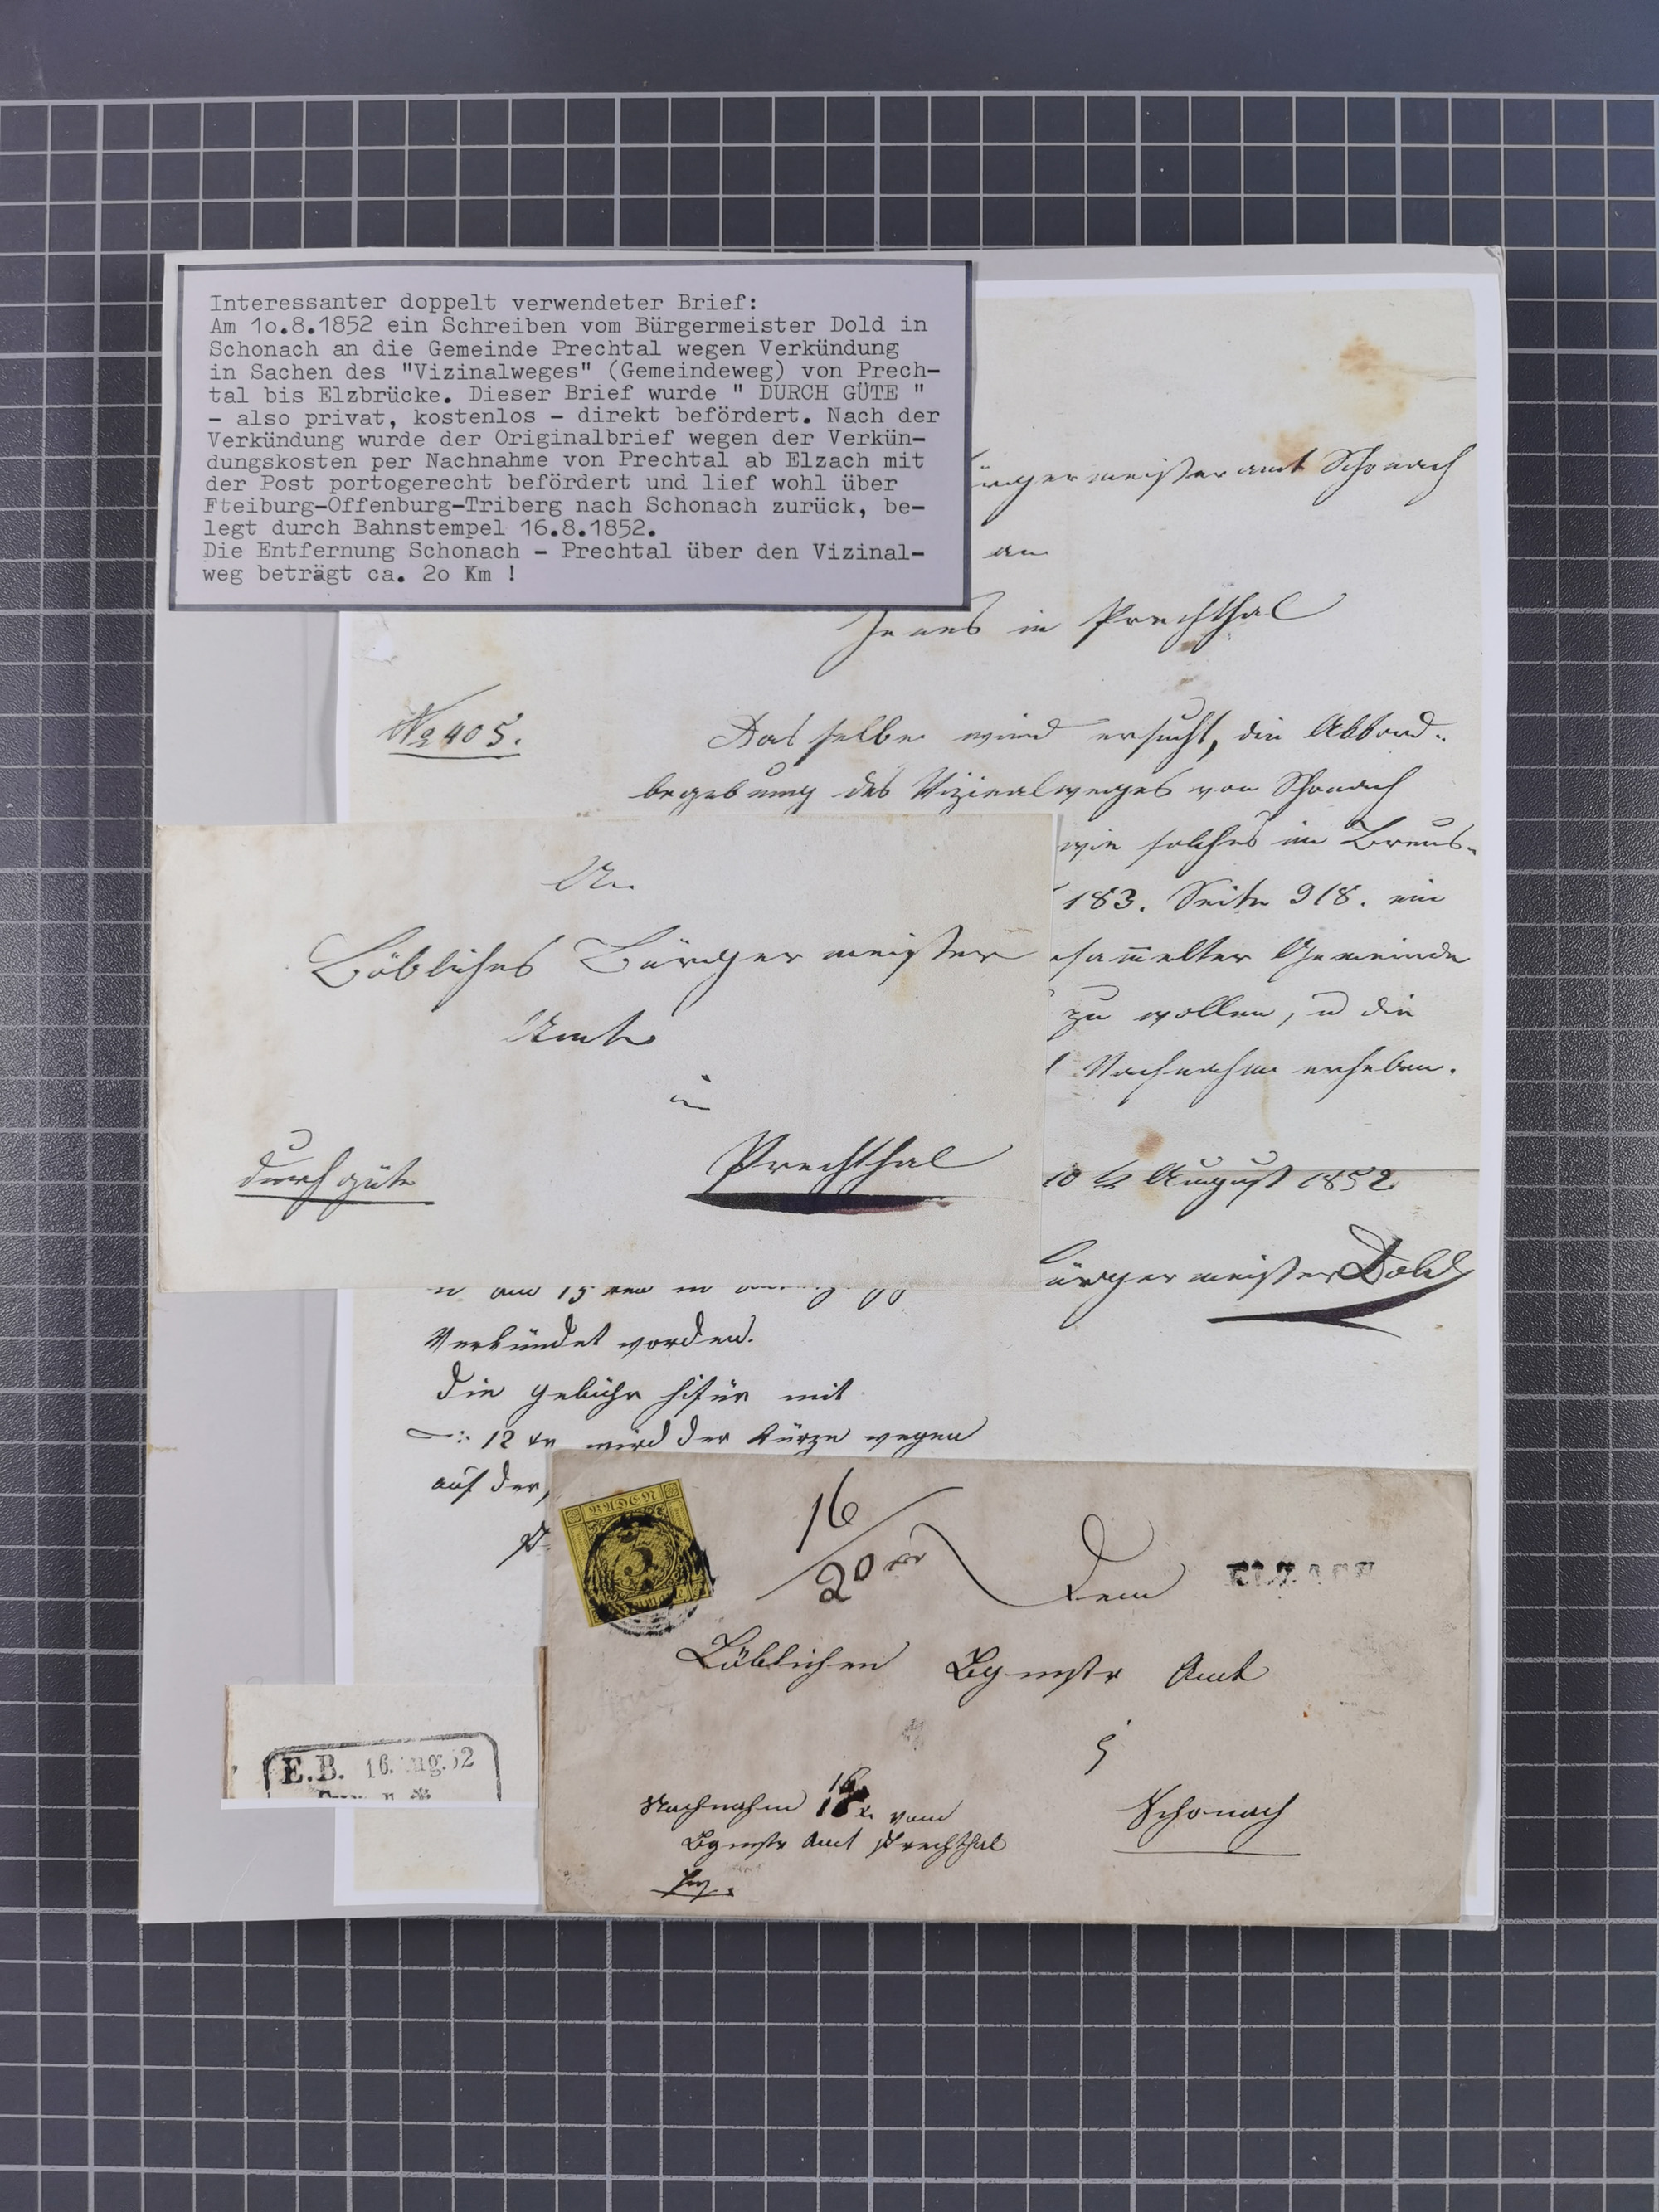 Interessanter doppelt verwendeter Brief:
Am 1o.8.1852 ein Schreiben vom Bürgermeister Dold in
Schonach an die Gemeinde Prechtal wegen Verkündung
in Sachen des "Vizinalweges" (Gemeindeweg) von Prech-
tal bis Elzbrücke. Dieser Brief wurde " DURCH GÜTE "
- also privat, kostenlos - direkt befördert. Nach der
Verkündung wurde der Originalbrief wegen der Verkün-
dungskosten per Nachnahme von Prechtal ab Elzach mit
der Post portogerecht befördert und lief wohl über
Fteiburg-Offenburg-Triberg nach Schonach zurück, be-
legt durch Bahnstempel 16.8.1852.
Die Entfernung Schonach - Prechtal über den Vizinal-
weg beträgt ca. 2o Km !
ürgermeisteramt Schonach
an
Jenes in Prechthal
No 405.
Dasselbe wird ersucht, die Akkord-
begebung des Vizinalweges von Schonach
wie solches im
183. Seite 918. ein
sam̄elter Gemeinde
zu wollen, u die
Nachnahme erheben.
10 August 1852
ürgermeister Dold
An
Löbliches Bürgermeister
Amt
in
Prechthal
durch güte
Verkündet worden.
Die gebühr hifür mit
12 xr wird der Kürze wegen
auf der
BADEN
3
16
20 xr
Dem
ELZACH
Löblichen Bgmstr Amt
Schonach
Nachnahm 16 x vom
Bgmstr Amt Prechthal
E.B. 16. ug. 52